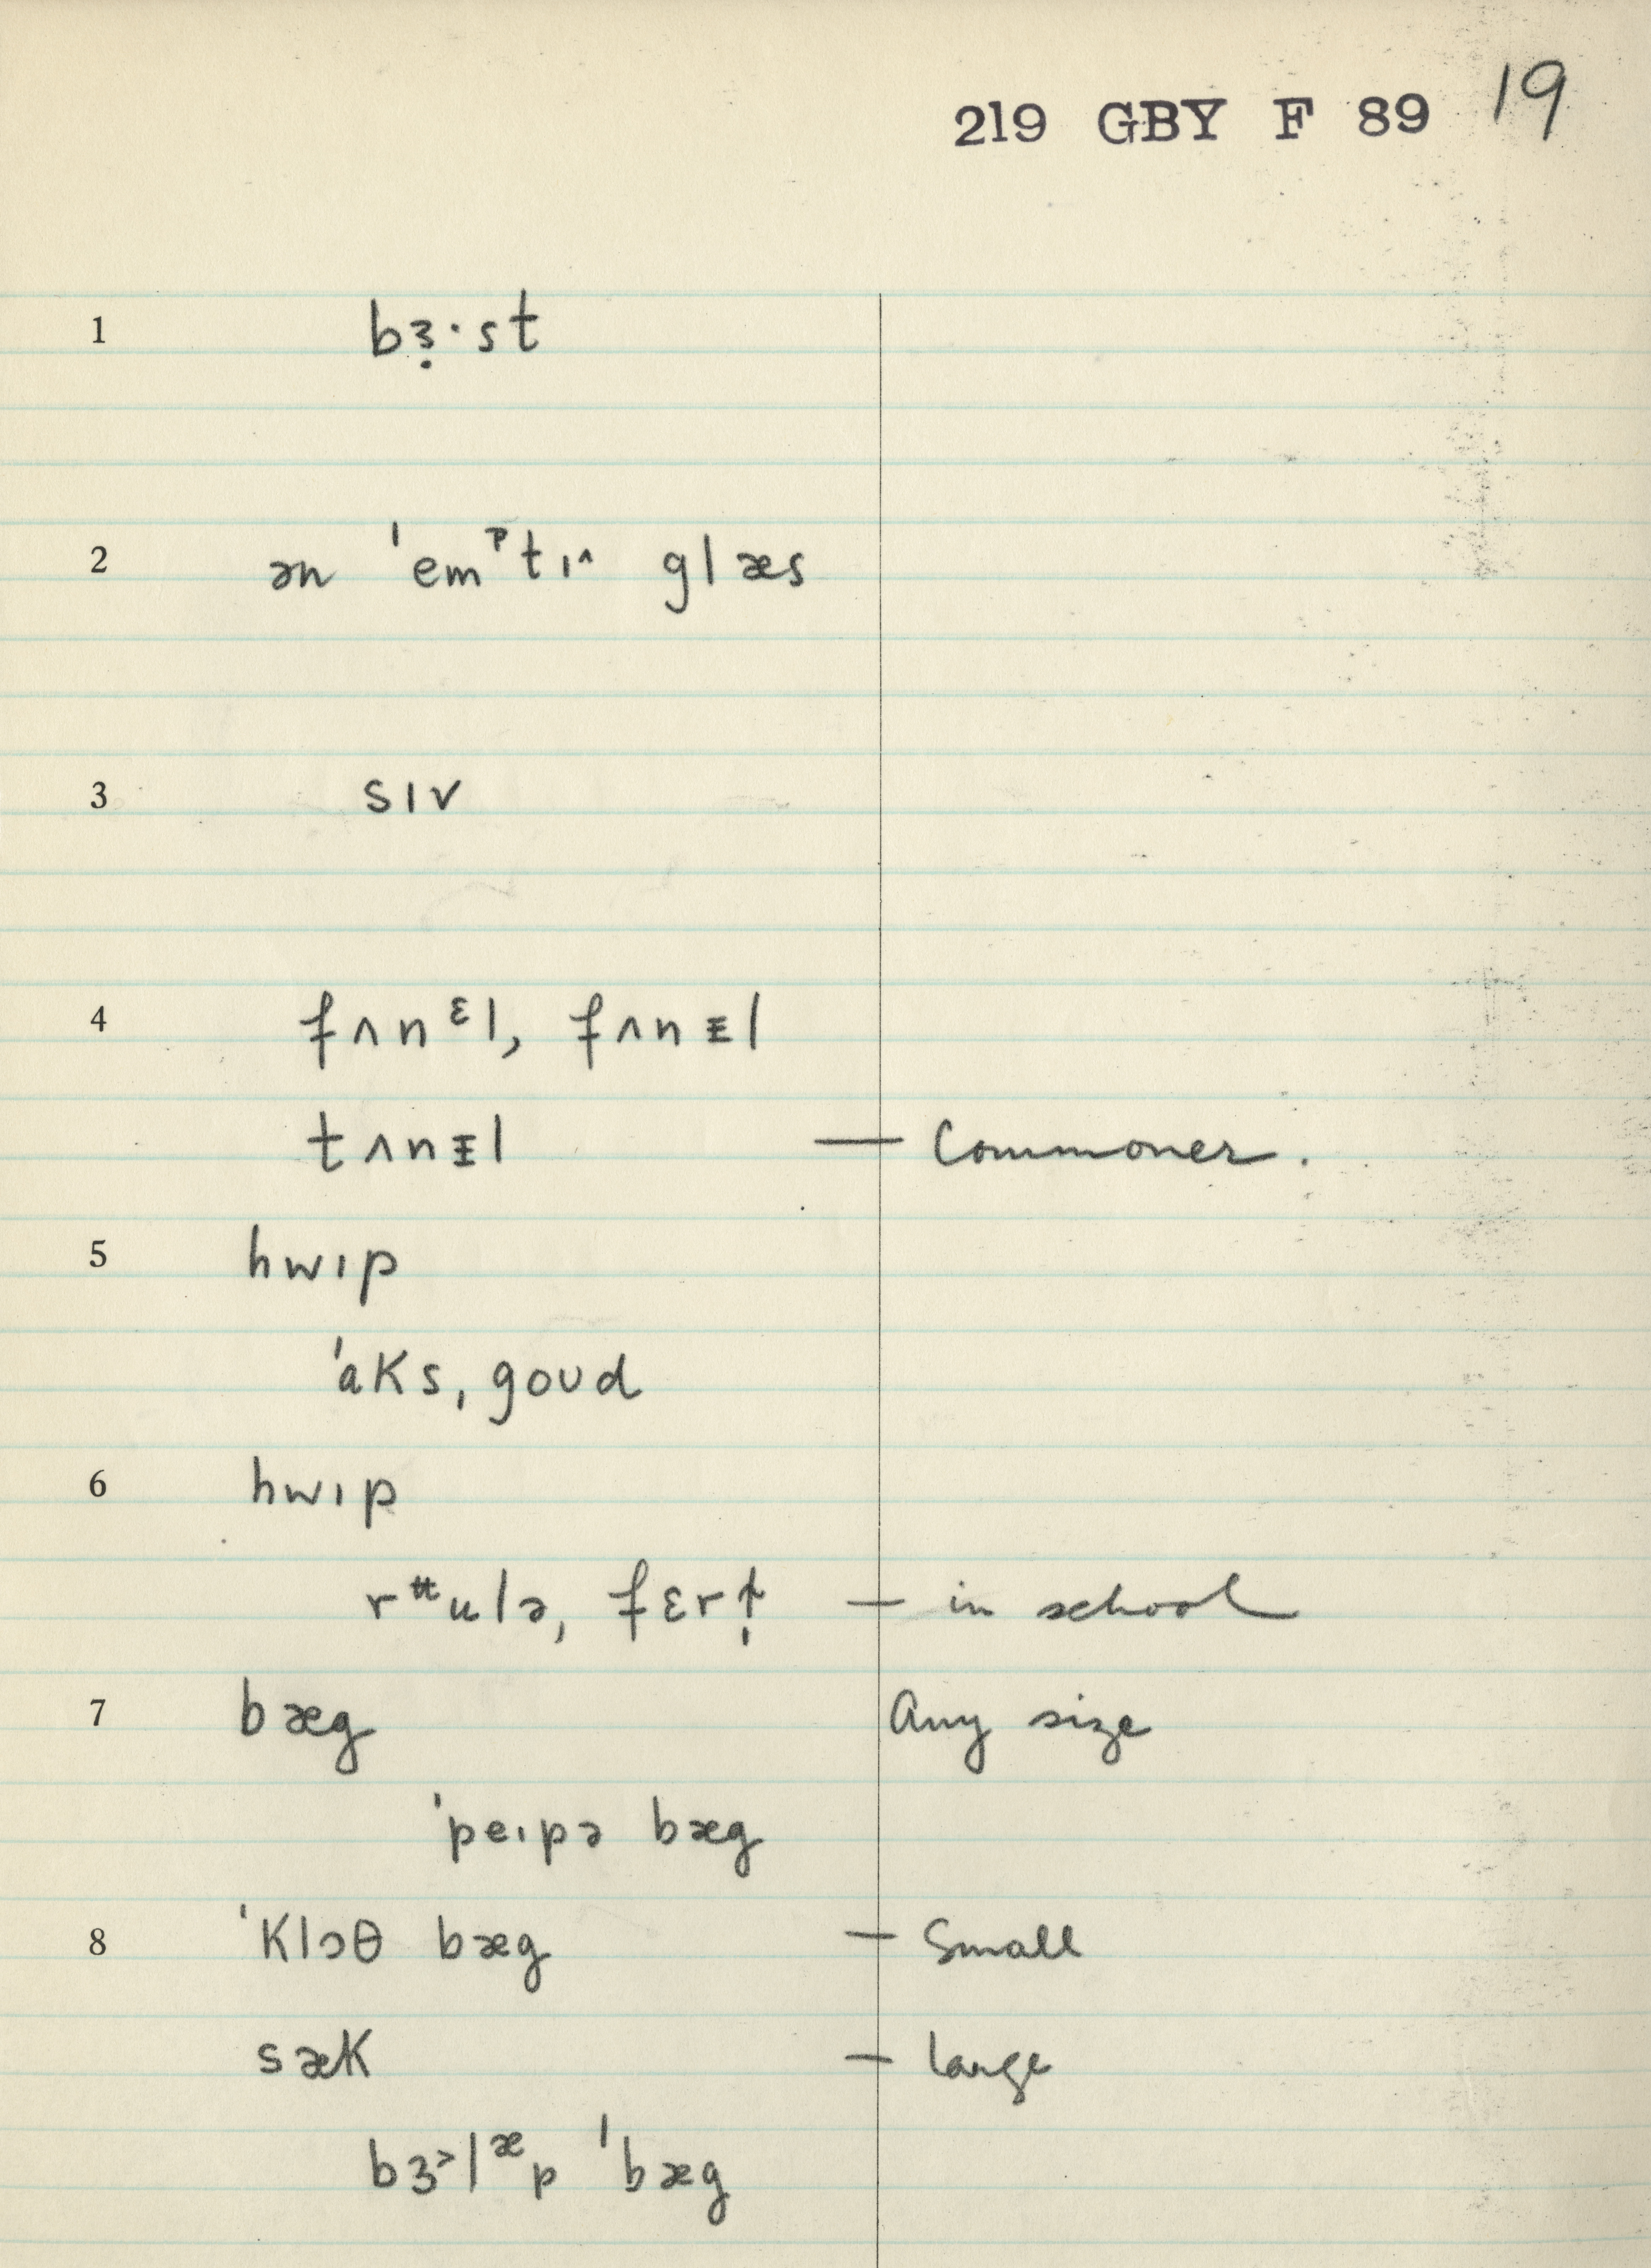 219 GBY F 89 19
1 bɜ̣·st
2 ən ˈemᵖtɪ^ glæs
3 sɪv
4 fʌnᵋl, fʌnᵻl
tʌnᵻl — Commoner.
5 hwɪp
ˈaks, goʊd
6 hwɪp
rᵘ̵ulə, fɛrɫ̩ — in school
7 bæg Any size
ˈpeɪpə bæg
8 ˈklɔθ bæg — Small
sæk — large
bɜ˃lᵆp ˈbæg